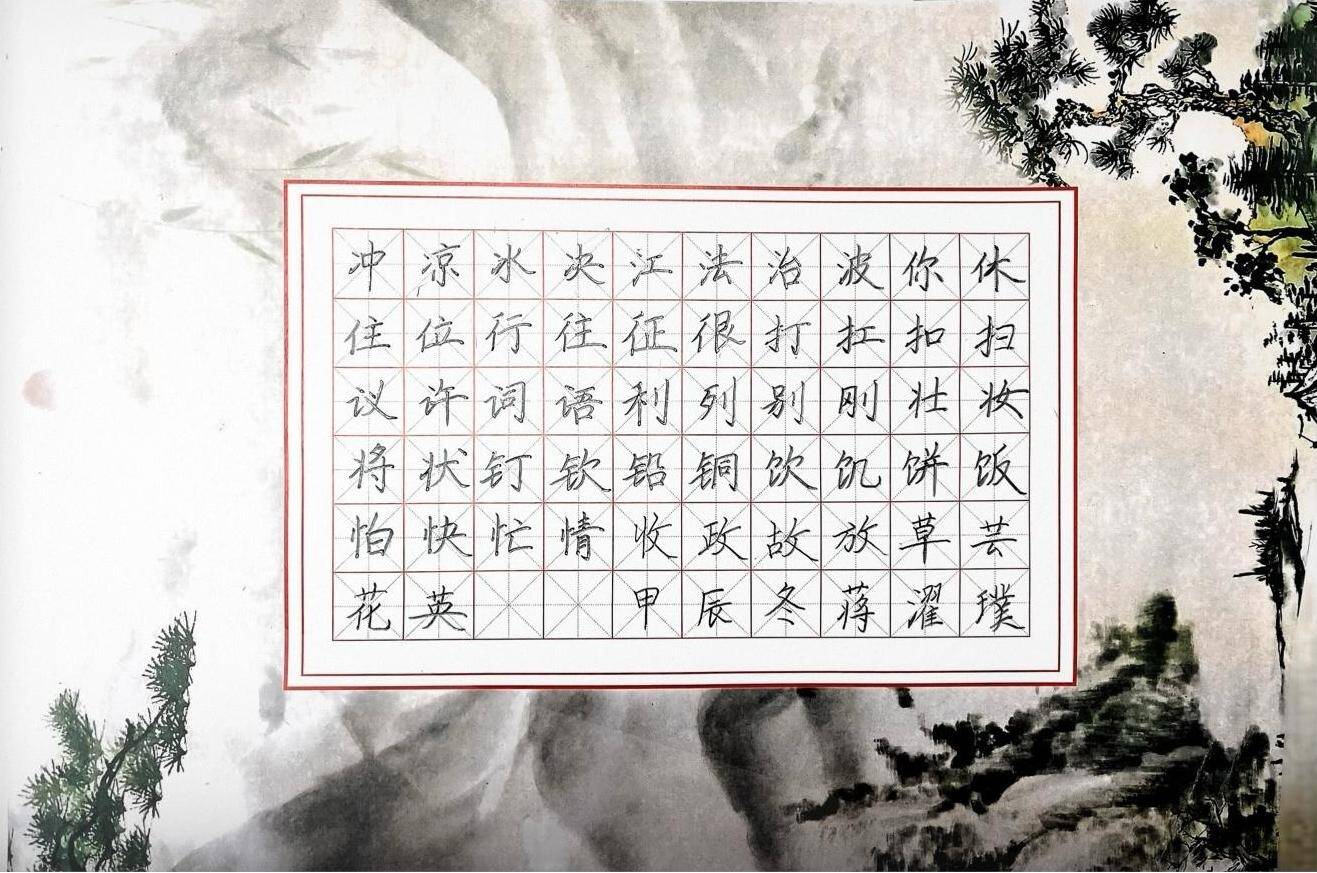 冲凉冰决江法治波你休
住位行往征很打扛扣扫
议许词语利列别刚壮妆
将状钉钦铅铜饮饥饼饭
怕快忙情收政故放草芸
花英甲辰冬蒋濯璞